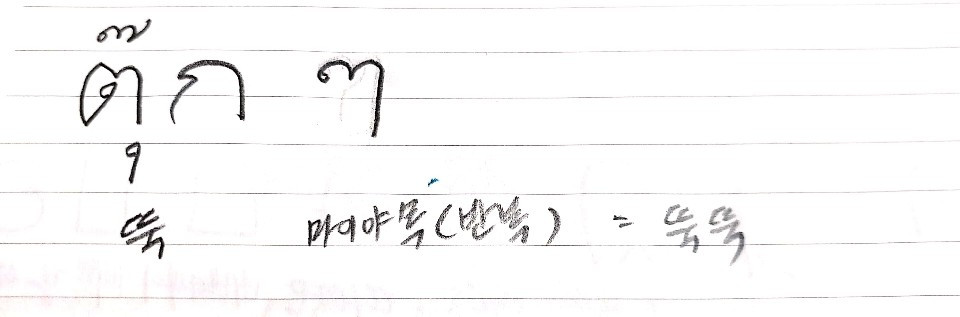 ตุ๊ก ๆ
뚝 마이야목(반복) = 뚝뚝